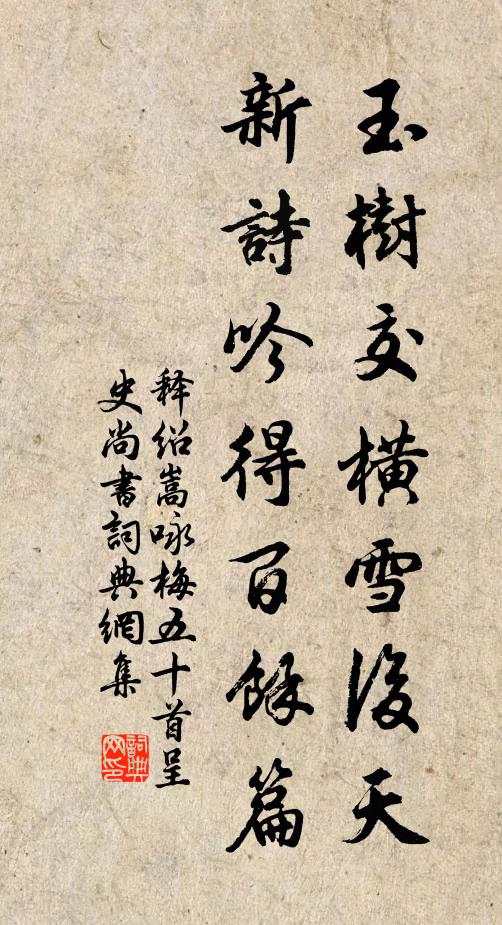 玉樹交橫雪後天
新詩吟得百餘篇
释绍嵩咏梅五十首呈
史尚書詞典網集
詞典網印